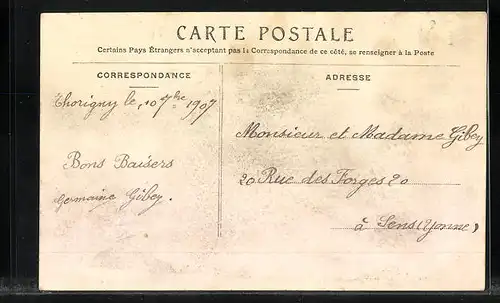 CARTE POSTALE
Certains Pays Étrangers n'acceptant pas la Correspondance de ce côté, se renseigner à la Poste
CORRESPONDANCE
Thorigny le, 10 7bre 1907
Bons Baisers
Germaine Gibey.
ADRESSE
Monsieur et Madame Gibey
20 Rue des Forges 20
à Sens (Yonne)